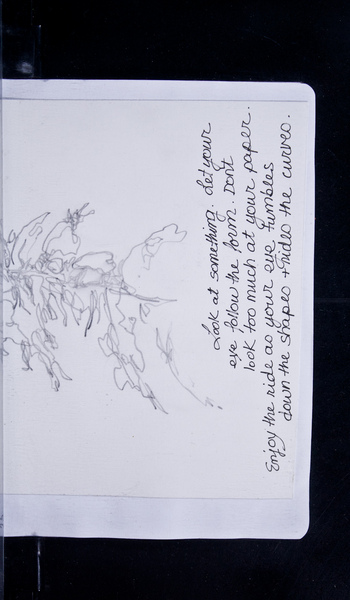 Look at something. Let your
eye follow the form. Don't
look too much at your paper.
Enjoy the ride as your eye tumbles
down the shapes + rides the curves.